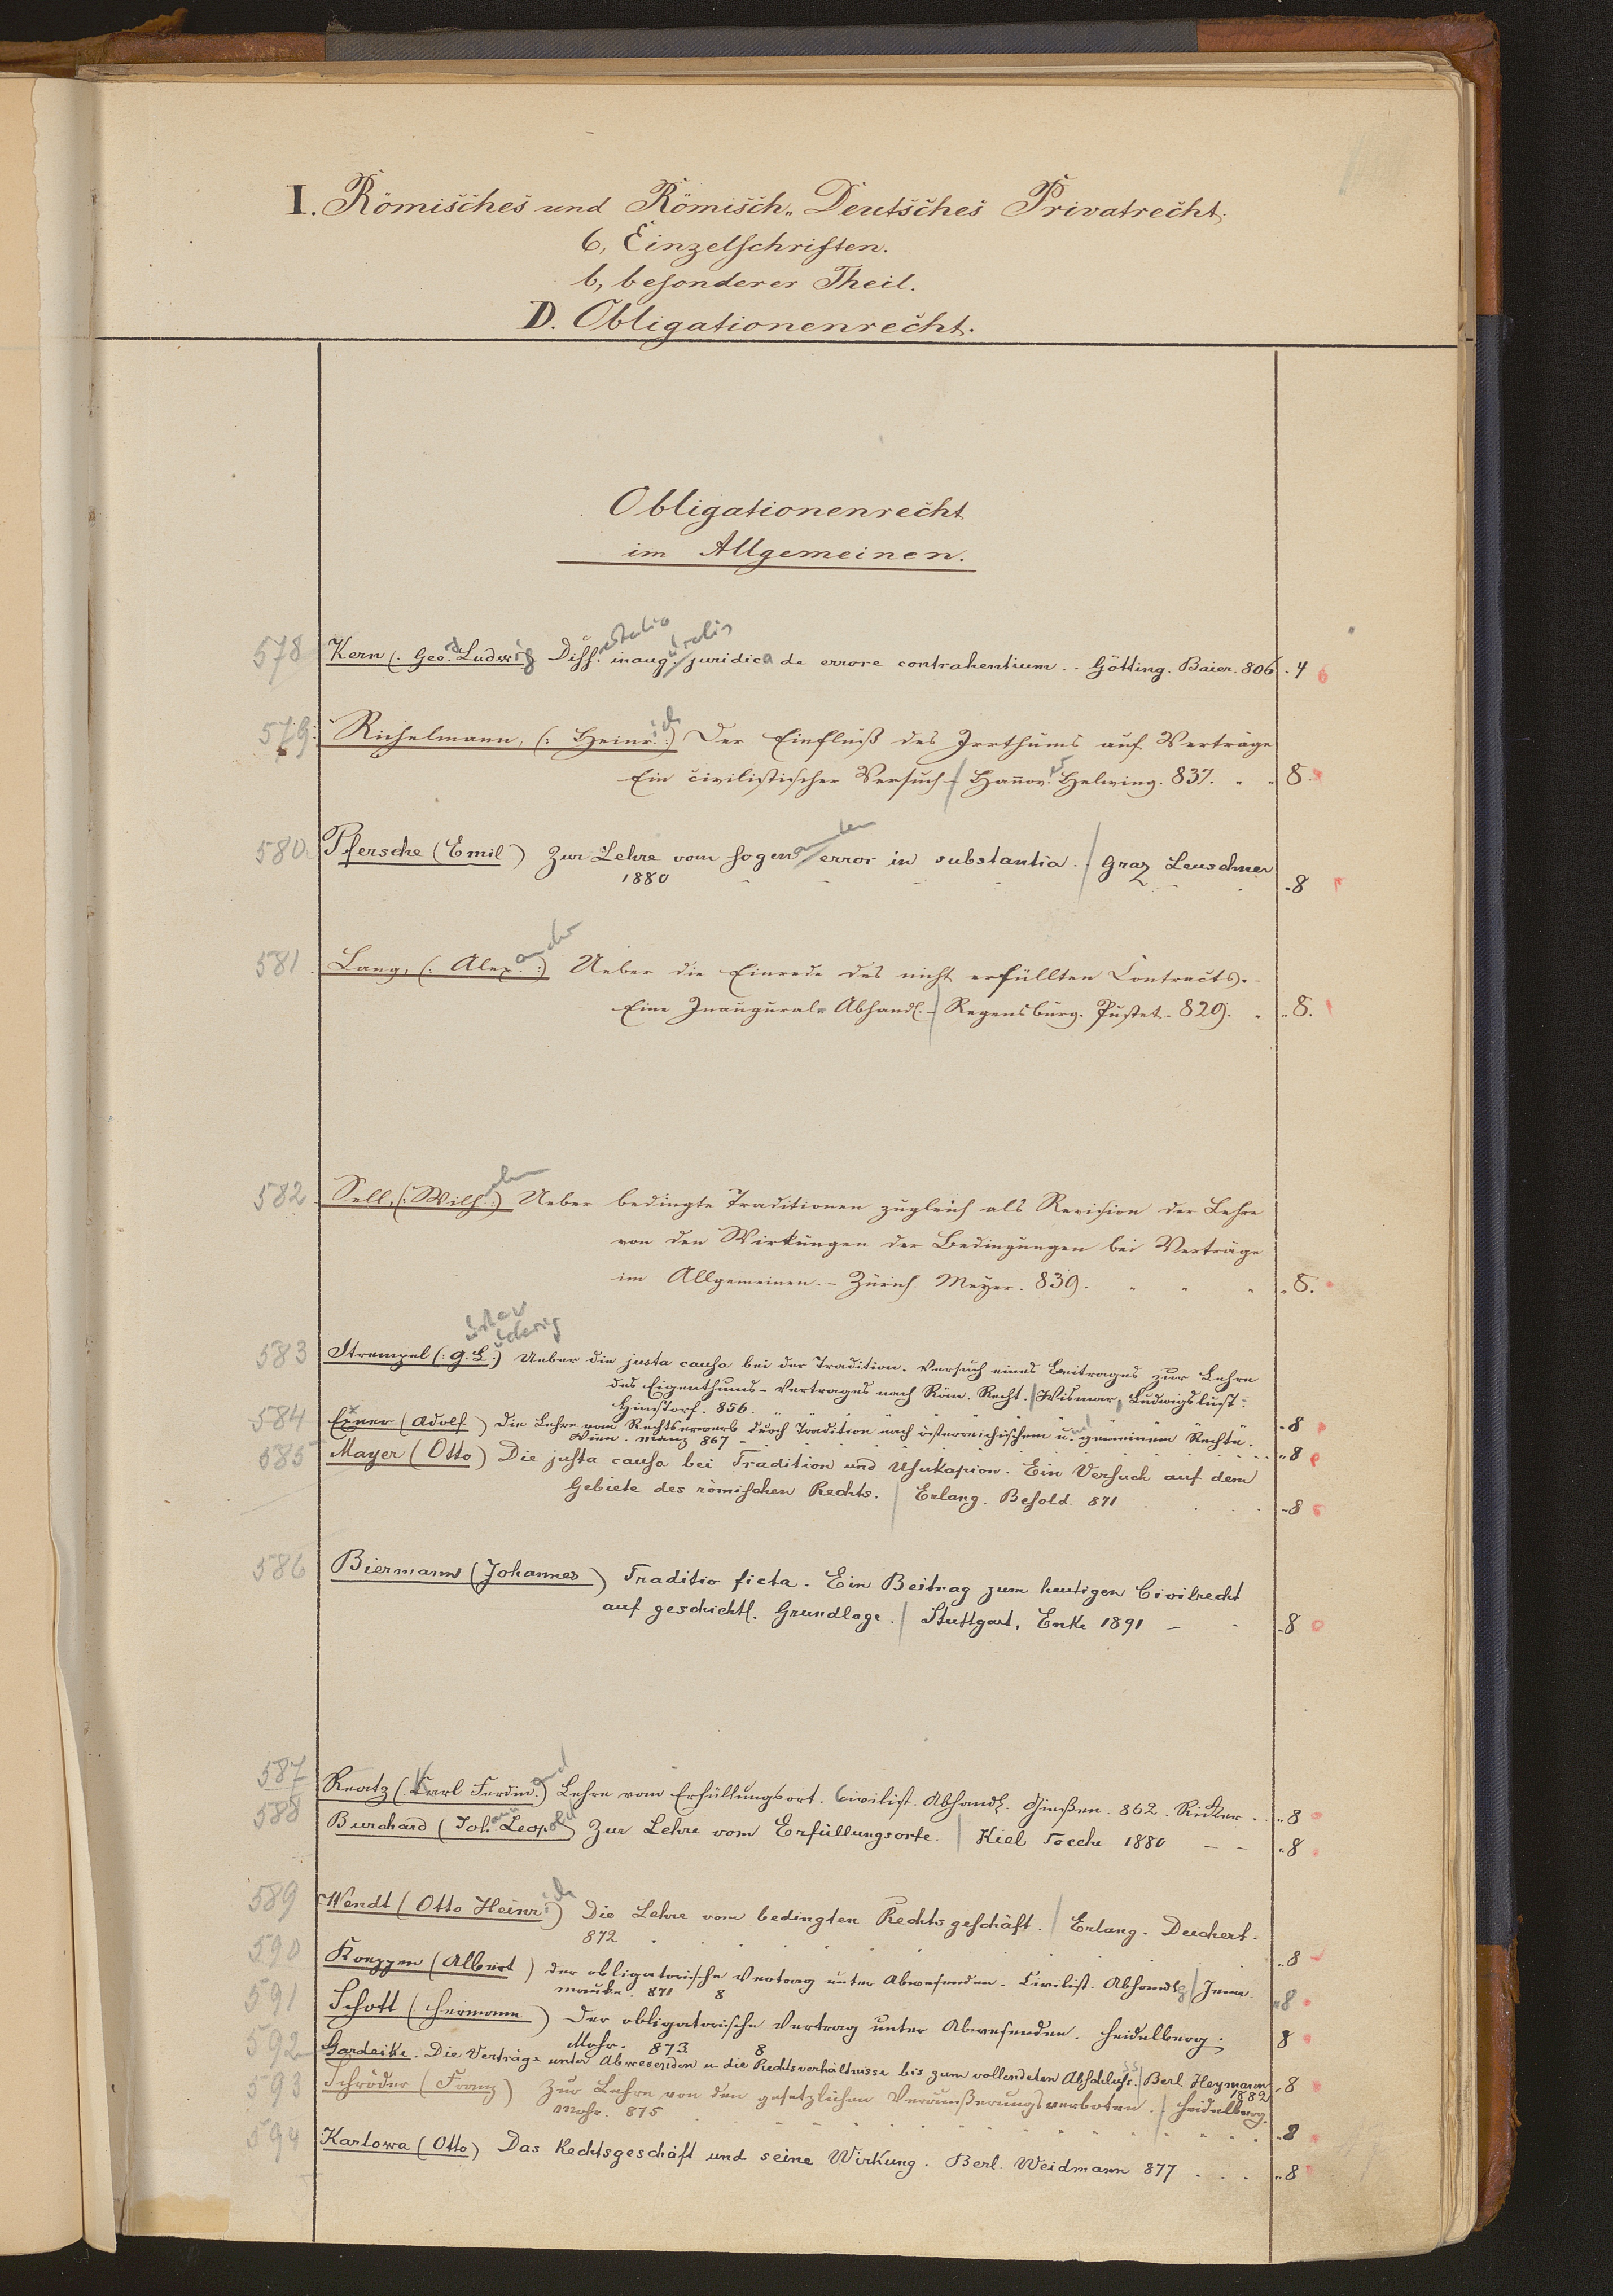 I. Römisches und Römisch-Deutsches Privatrecht.
6, Einzelschriften.
b, besonderer Theil.
D. Obligationenrecht.
Obligationenrecht
im Allgemeinen.
578 Kern (. Geo. Ludwig Diss. inaug. juridica de errore contrahentium .. Götting. Baier. 806 . 4
579. Richelmann, (: Heinrich :) Der Einfluß des Irrthums auf Verträge
Ein civilistischer Versuch - / Hannov. Helwing. 837. " " 8.
580 Pfersche (Emil) Zur Lehre vom sogenannten error in substantia. / Graz Leuschner
1880 - 8
581. Lang, (: Alexander :) Ueber die Einrede des nicht erfüllten Contracts. -
Eine Inaugural-Abhandl. - / Regensburg. Pustet. 829. " " 8.
582 Sell, (: Wilhelm :) Ueber bedingte Traditionen zugleich als Revision der Lehre
von den Wirkungen der Bedingungen bei Verträge
im Allgemeinen. - Zürich. Meyer. 839. " " " " 8.
583 Strempel (: G. L. :) Ueber die justa causa bei der Tradition. Versuch eines Beitrages zur Lehre
ustav udwig
des Eigenthums-Vertrages nach Röm. Recht. / Wismar, Ludwigslust:
Hinstorf. 856. - 8
584 Exner (Adolf) Die Lehre vom Rechtserwerb durch Tradition nach österreichischem u. gemeinem Rechte.
Wien. Manz 867 - " 8
585 Mayer (Otto) Die justa causa bei Tradition und Usukapion. Ein Versuch auf dem
Gebiete des römischen Rechts. / Erlang. Besold. 871 - 8
586 Biermann (Johannes) Traditio ficta. Ein Beitrag zum heutigen Civilrecht
auf geschichtl. Grundlage. / Stuttgart, Enke 1891 - - 8
587 Reatz (Karl Ferdinand) Lehre vom Erfüllungsort. Civilist. Abhandl. Gießen. 862. Ricker . . " 8
588 Burchard (Johann Leopold) Zur Lehre vom Erfüllungsorte. / Kiel Toeche 1880 - - " 8
589 Wendt (Otto Heinrich) Die Lehre vom bedingten Rechtsgeschäft. / Erlang. Deichert.
872 " 8
590 Koeppen (Albert) der obligatorische Vertrag unter Abwesenden. Civilist. Abhandlg / Jena.
Mauke. 871 8 " 8
591 Schott (Hermann) Der obligatorische Vertrag unter Abwesenden. Heidelberg.
Mohr. 873 8 8
592 Gardeike. Die Verträge unter Abwesenden u. die Rechtsverhältnisse bis zum vollendeten Abschluss. / Berl. Heymann
1882 - 8
593 Schröder (Franz) Zur Lehre von den gesetzlichen Veräußerungsverboten. / Heidelberg.
Mohr. 875 - 8
594 Karlowa (Otto) Das Rechtsgeschäft und seine Wirkung. Berl. Weidmann 877 . . . " 8